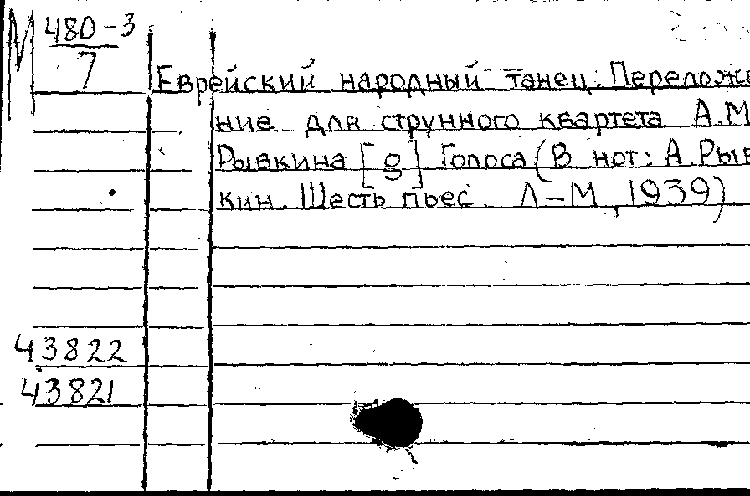 М 480-3
7
Еврейский народный танец. Переложе
ние для струнного квартета А.М
Рывкина [g] Голоса (В нот: А. Рыв
кин. Шесть пьес. Л-М, 1939)
43822
43821